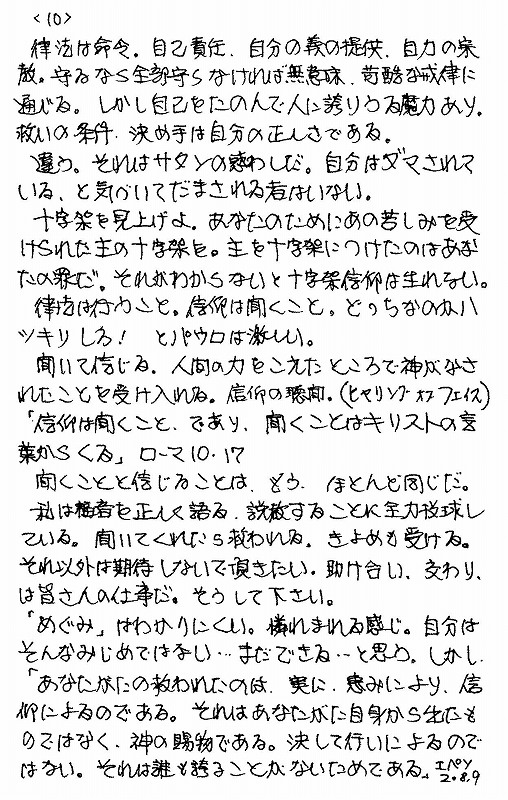 <10>
律法は命令。自己責任、自分の義の提供、自力の宗
教。守るなら全部守らなければ無意味、苛酷な戒律に
通じる。しかし自己をたのんで人に誇りうる魔力あり。
救いの条件、決め手は自分の正しさである。
違う。それはサタンの惑わしだ。自分はダマされて
いる、と気がいてだまされる者はいない。
十字架を見上げよ。あなたのためにあの苦しみを受
けられた主の十字架を。主を十字架につけたのはあな
たの罪だ。それがわからないと十字架信仰は生れない。
律法は行うこと。信仰は聞くこと。どっちなのかハ
ツキリしろ! とパウロは激しい。
聞いて信じる。人間の力をこえたところで神がなさ
れたことを受け入れる。信仰の聴聞。(ヒヤリング オブ フェイス)
「信仰は聞くこと、であり、聞くことはキリストの言
葉からくる」ローマ10.17
聞くことと信じることは、もう、ほとんど同じだ。
私は福音を正しく語る、説教することに全力投球し
ている。聞いてくれたら救われる。きよめも受ける。
それ以外は期待しないで頂きたい。助け合い、交わり、
は皆さんの仕事だ。そうして下さい。
「めぐみ」はわかりにくい。憐れまれる感じ。自分は
そんなみじめではない…まだできる…と思う。しかし、
「あなたがたの救われたのは、実に、恵みにより、信
仰によるのである。それはあなたがた自身から出たも
のではなく、神の賜物である。決して行いによるので
はない。それは誰も誇ることがないためである」エペソ
2.8.9